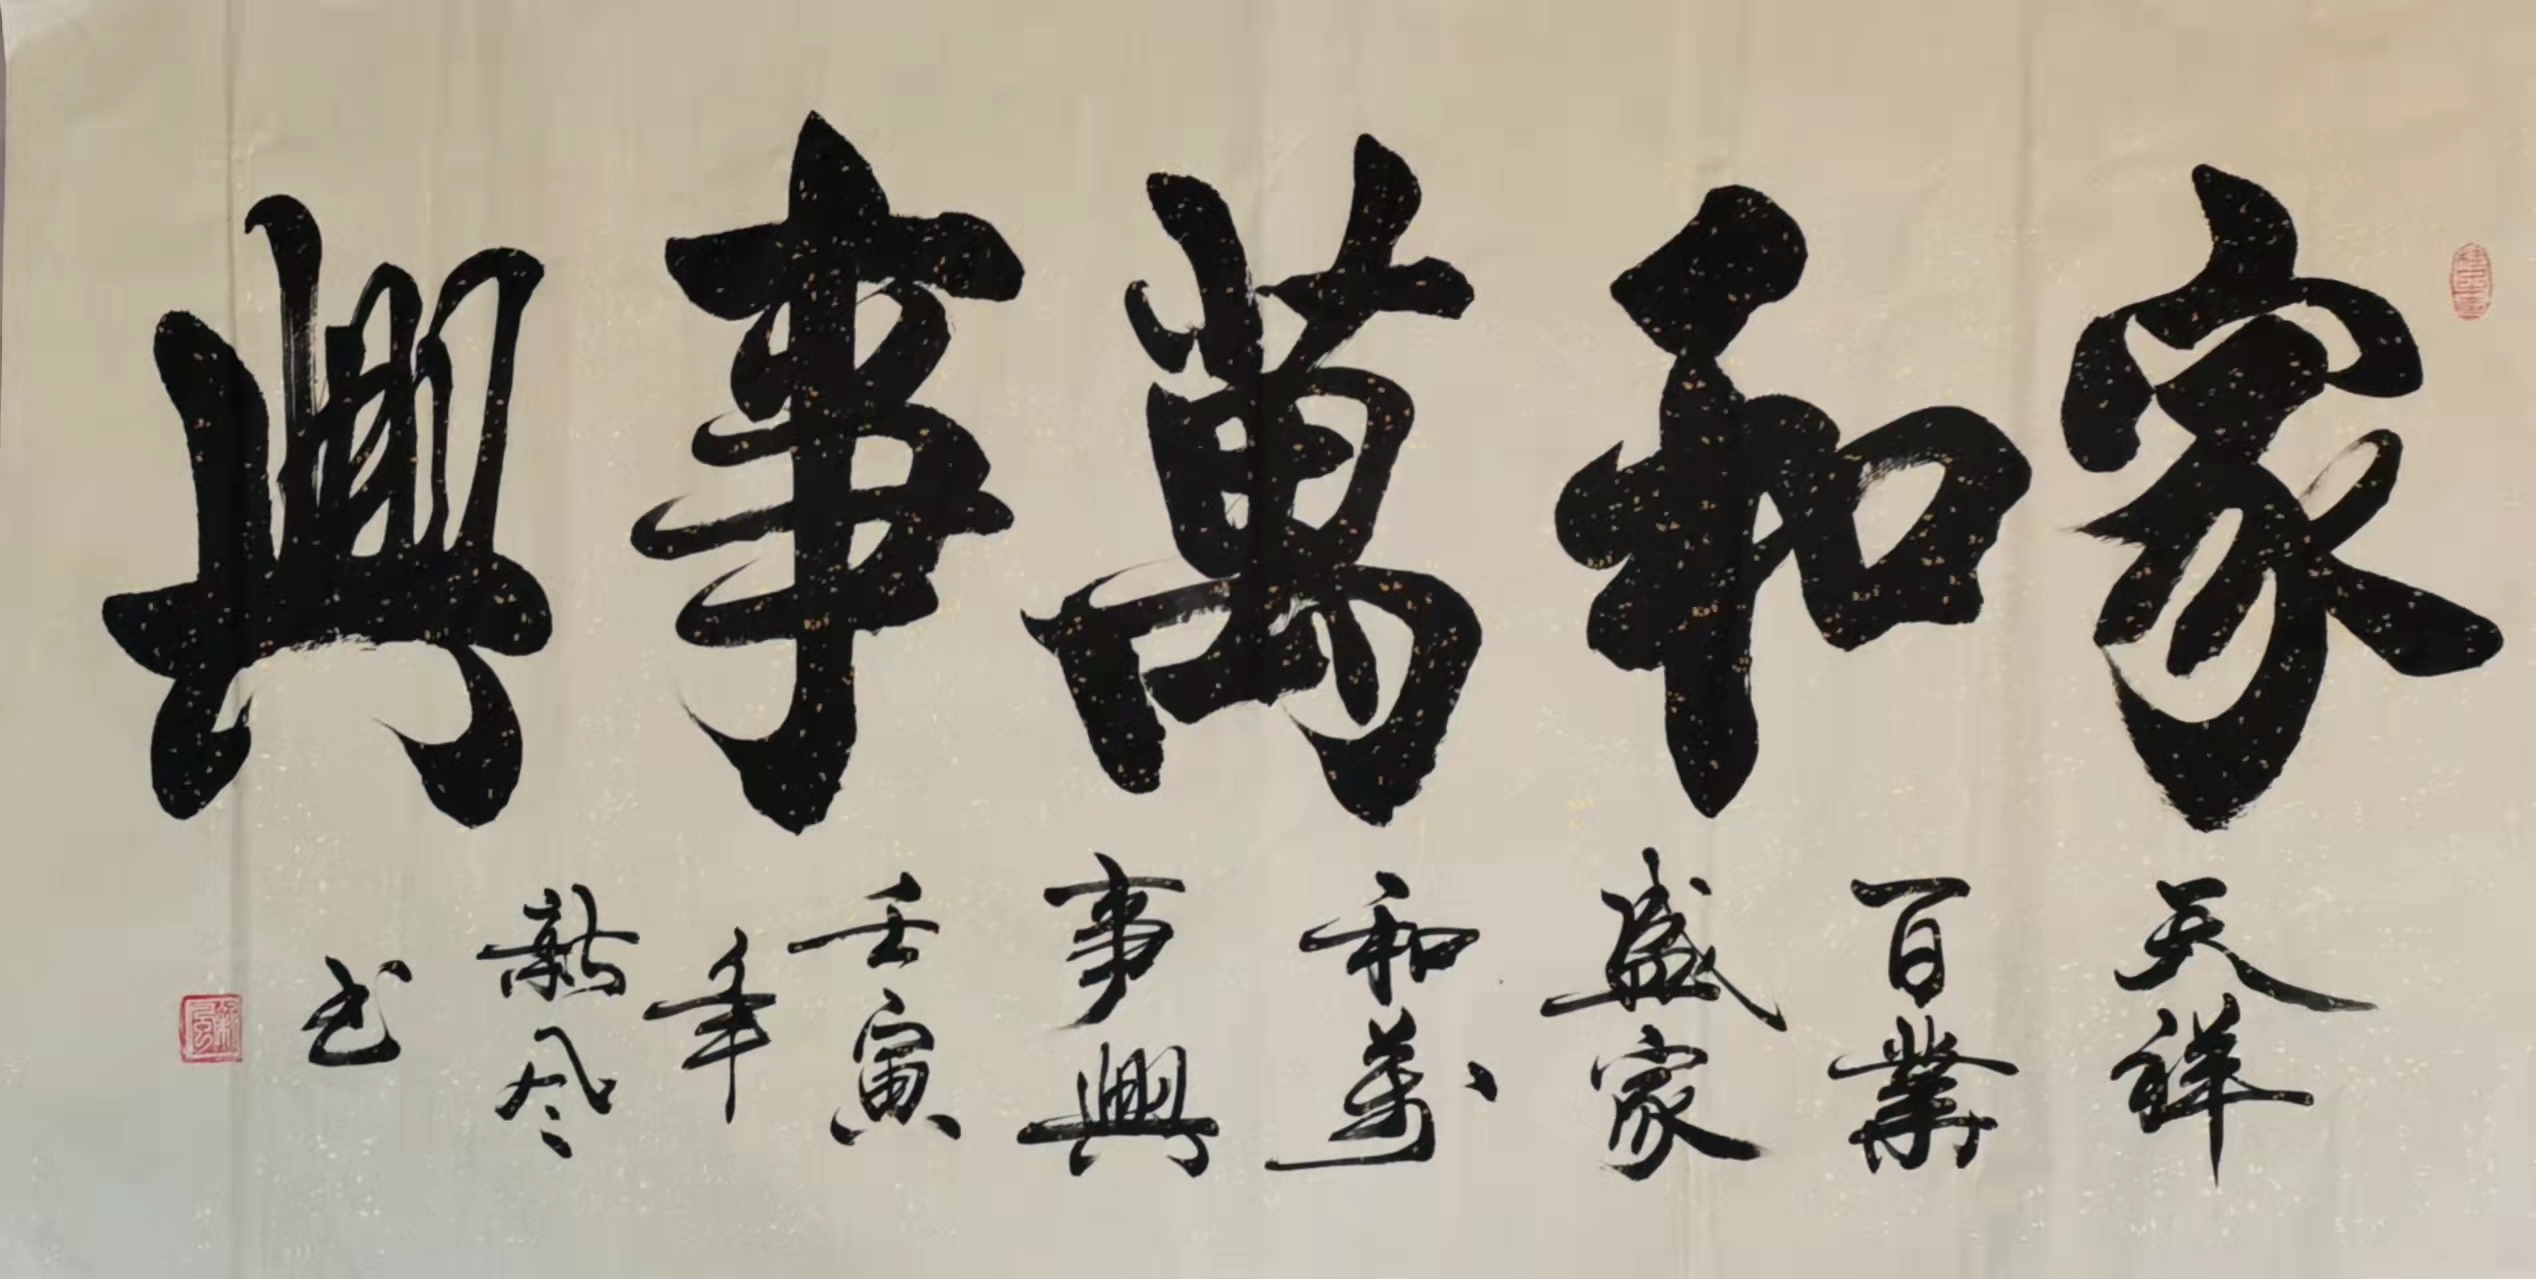 家和萬事興
天祥
百業
盛家
和萬
事興
壬寅
年
新风
书